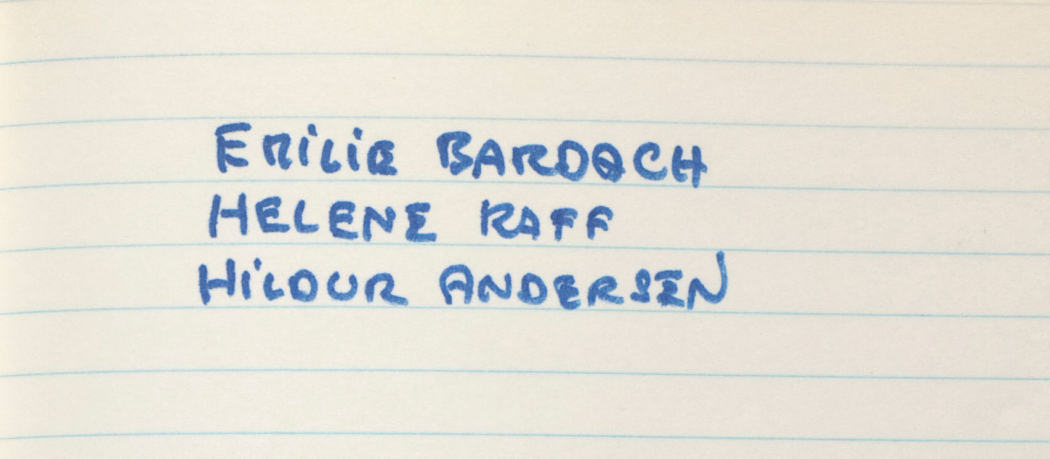 EMiLiE BARDACH
HELENE RAFF
HiLDUR ANDERSEN